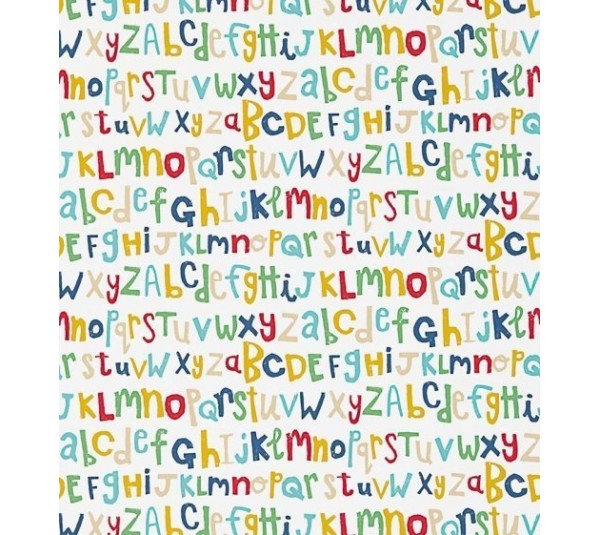 DEFGHiJKLMNOPQRSTUVW
WXYZAbCdefgHijKLMNOPQrstuvw
MNOPqrSTUVWXYZabcdefGhijklm
rstuvWXyzaBCDEFgHiJKLMNOPQ
JKLmnoPQrstuVWXYZAbCdefgHi
abcdefGhIjklmnopqrSTUVWXYZ
DEFgHiJKLMNOPQrstuvWXyzaBCD
WXYZAbCdefgHiJKLmnoPQrstuv
MnopqrSTUVWXYZabcdefGhIjklm
rstuvWXyzaBCDEFgHiJKLMNOPQ
JKLmnoPQrstuVWXYZAbCdefgHi
abcdefGhIjklmnopqrSTUVWXYZ
DEFgHiJKLMNOPQrstuvWXyzaBCD
WXYZAbCdefgHiJKLmnoPQrstuv